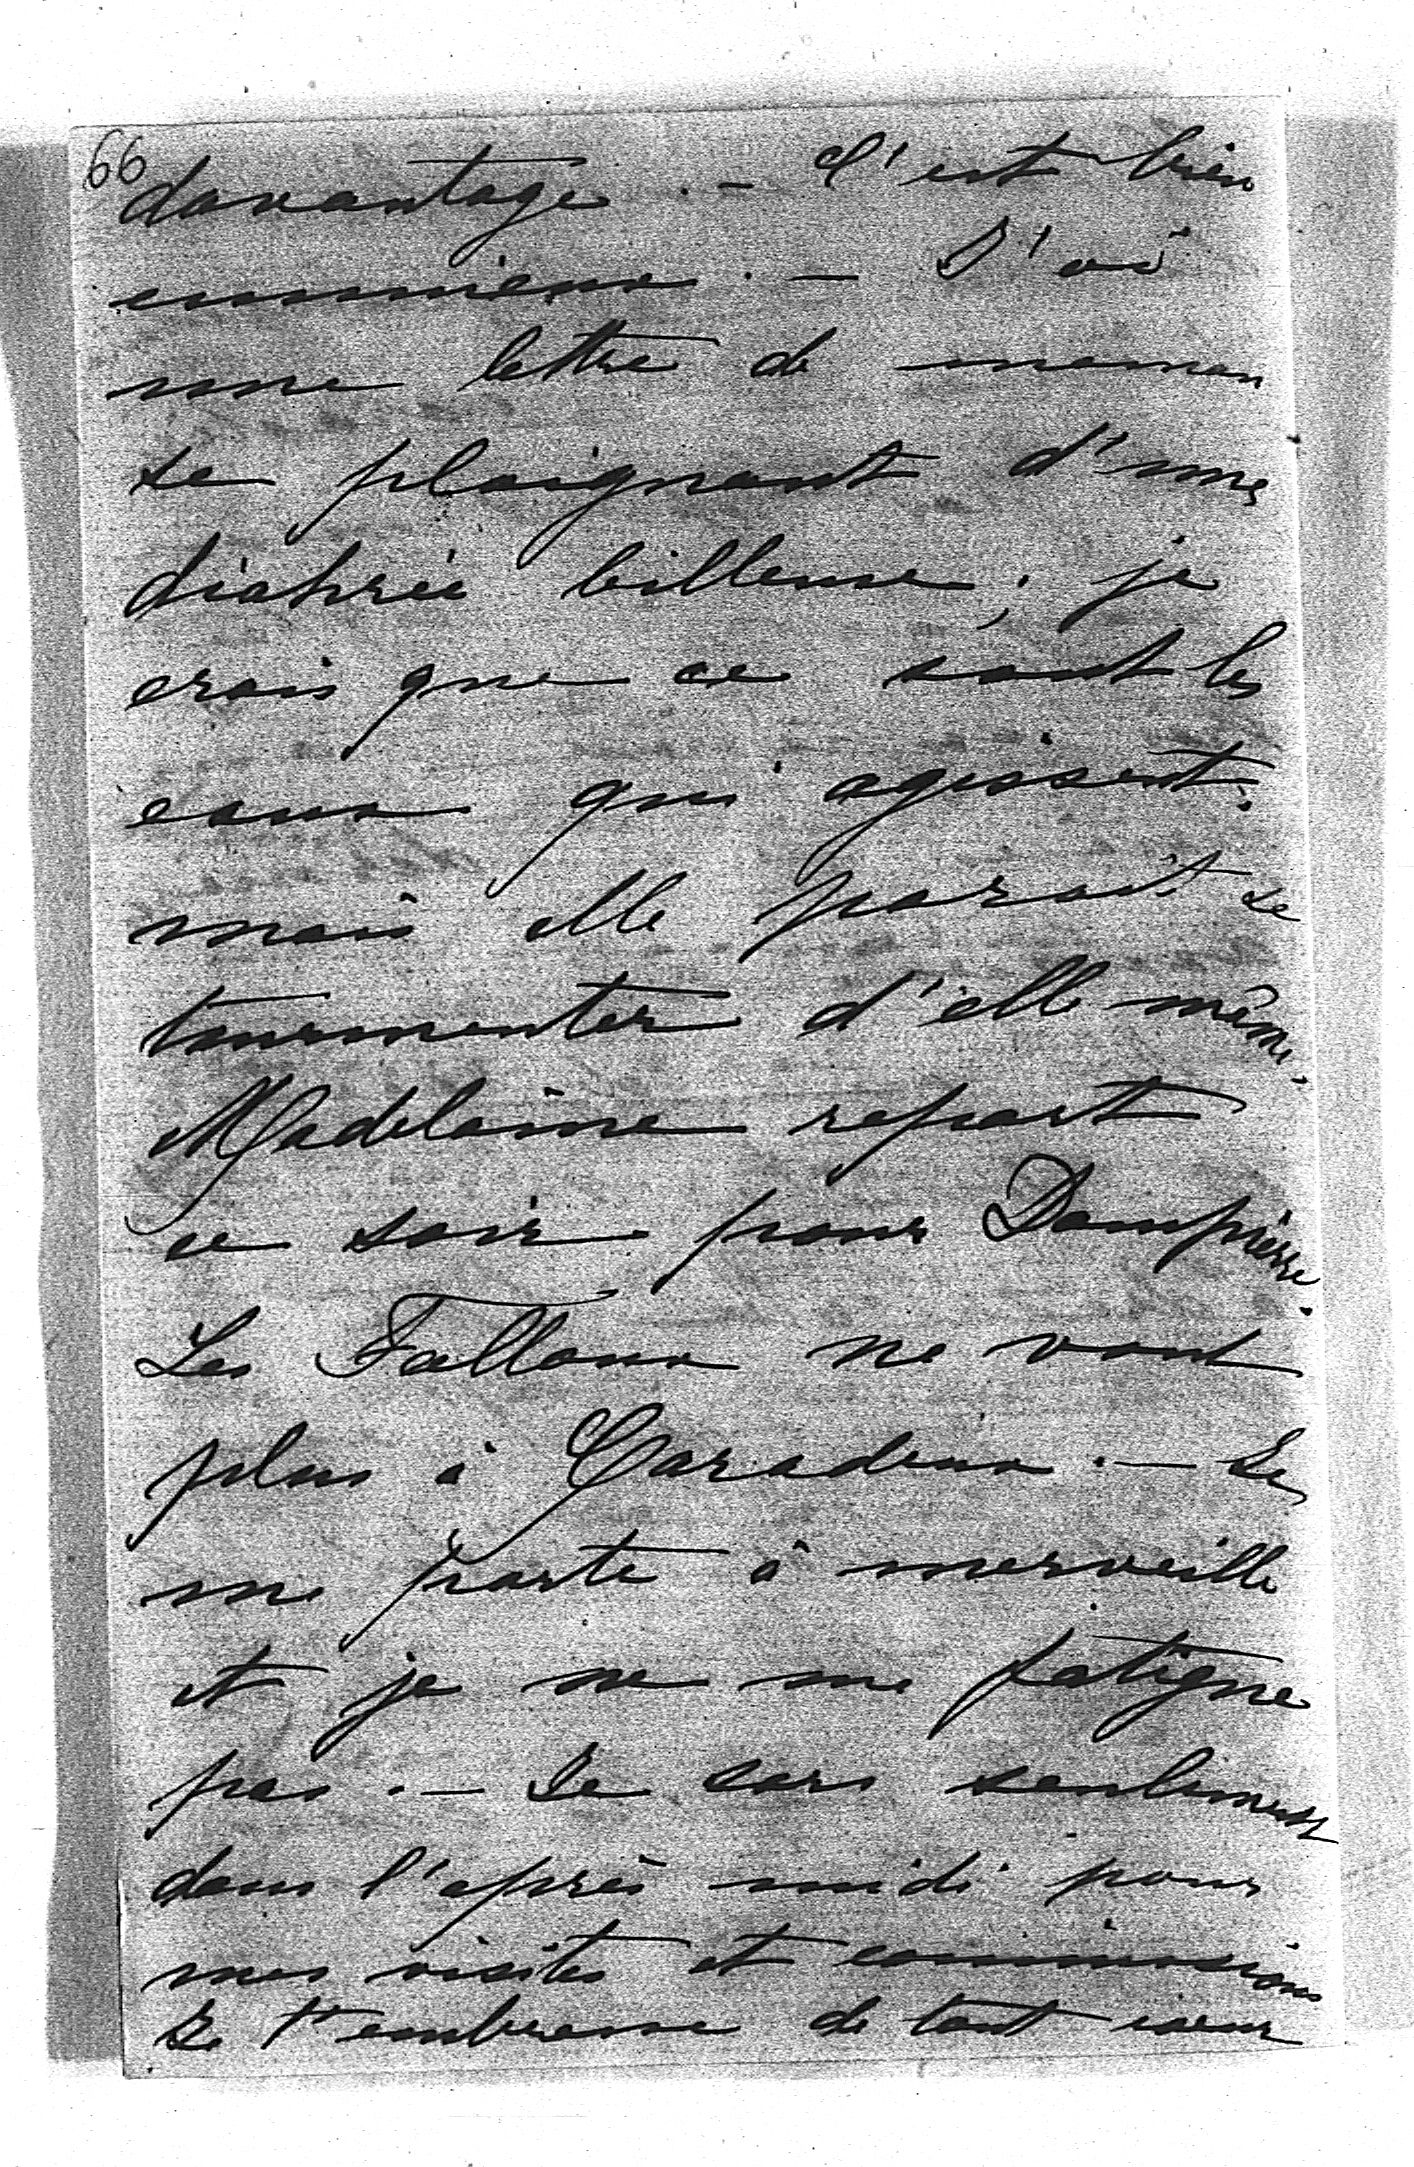 66
davantage. – C'est bien
ennuieux. – J'ai
une lettre de maman
se plaignant d'une
diahrée billeuse; je
crois que ce sont les
eaux qui agissent,
mais elle parait se
tourmenter d'elle même.
Madelaine repart
ce soir pour Dampierre.
Les Falloux ne vont
plus à Caradeux. – Je
me porte à merveille
et je ne me fatigue
pas. – Je sors seulement
dans l'après midi pour
mes visites et commissions
Je t'embrasse de tout cœur